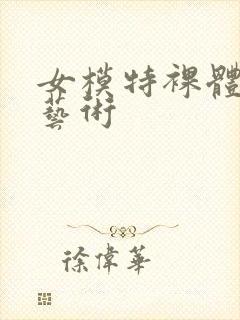 女模特裸體
藝術
徐偉華